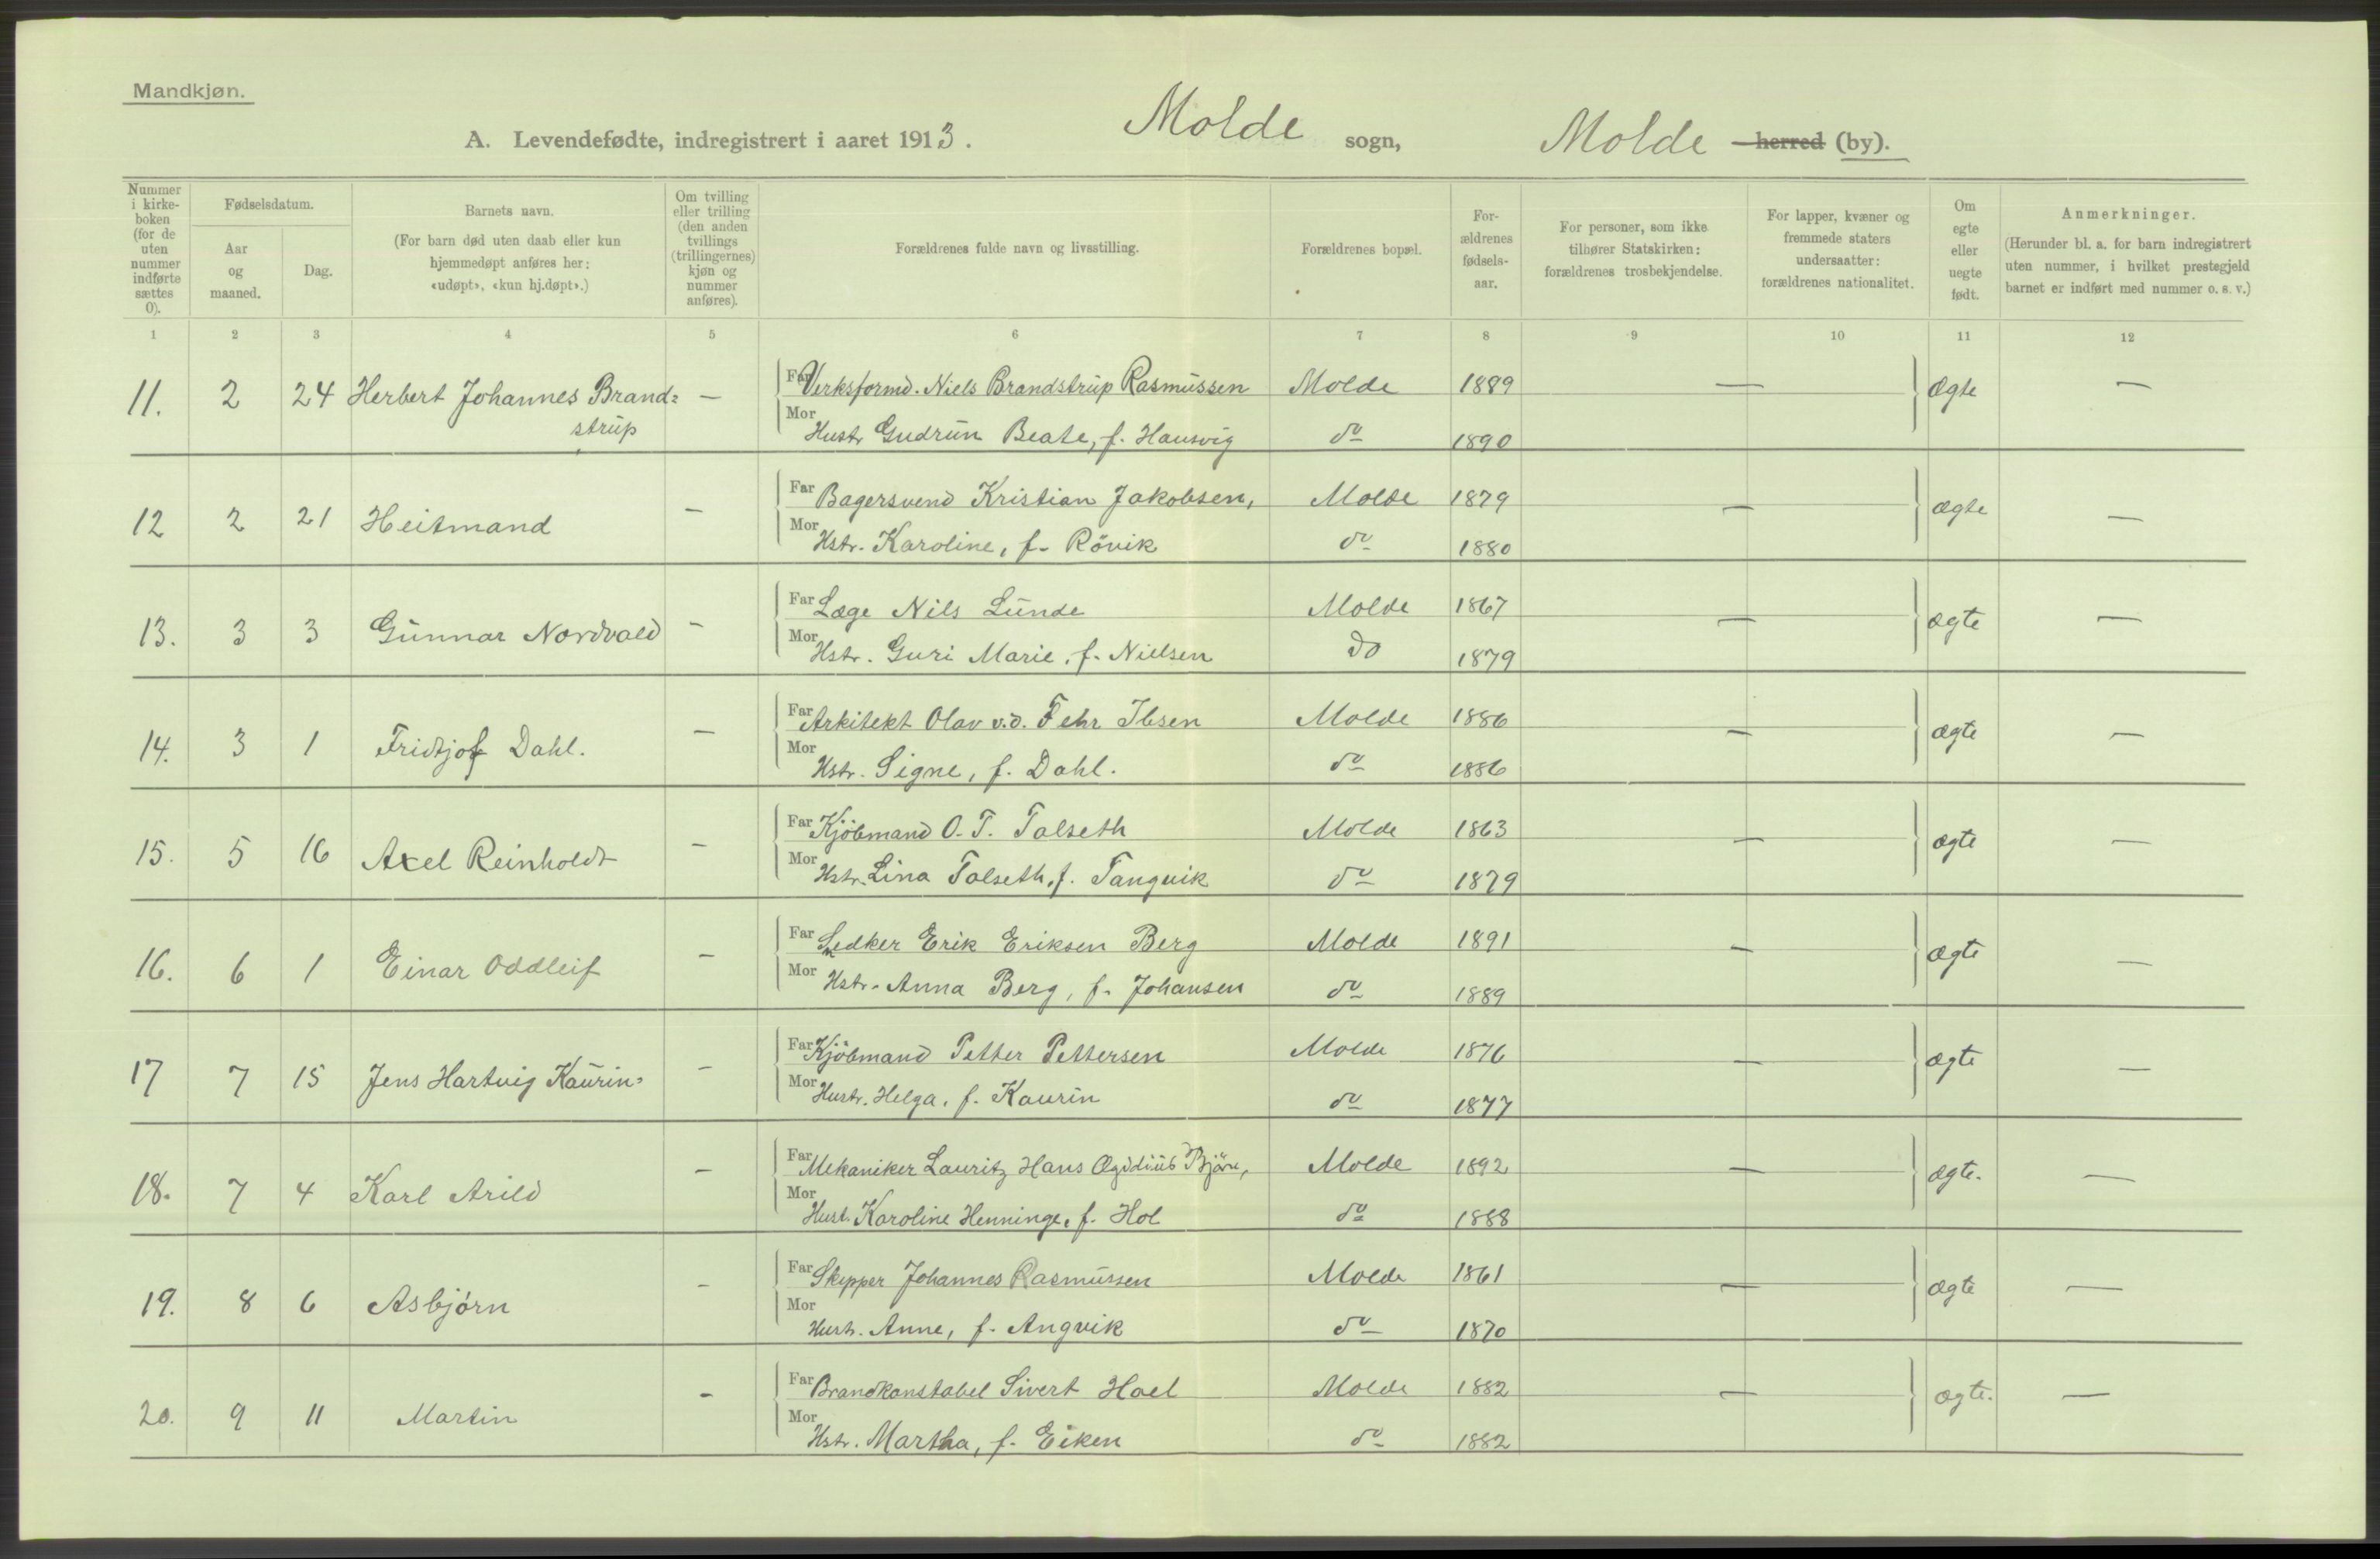 Mandkjøn.
A. Levendefødte, indregistrert i aaret 1913. Molde sogn, Molde herred (by).
Nummer i kirkeboken (for de uten nummer indførte sættes 0).
Fødselsdatum.
Aar og maaned.
Dag.
Barnets navn.
(For barn død uten daab eller kun hjemmedøpt anføres her: «udøpt», «kun hj.døpt».)
Om tvilling eller trilling (den anden tvillings (trillingernes) kjøn og nummer anføres).
Forældrenes fulde navn og livsstilling.
Forældrenes bopæl.
Forældrenes fødselsaar.
For personer, som ikke tilhører Statskirken: forældrenes trosbekjendelse.
For lapper, kvæner og fremmede staters undersaatter: forældrenes nationalitet.
Om egte eller uegte født.
Anmerkninger.
(Herunder bl. a. for barn indregistrert uten nummer, i hvilket prestegjeld barnet er indført med nummer o. s. v.)
1 2 3 4 5 6 7 8 9 10 11 12
11. 2 24 Herbert Johannes Brand= — Far Verksformd. Niels Brandstrup Rasmussen Molde 1889 — Ægte —
strup Mor Hustr Gudrun Beate, f. Hansvig do 1890
12 2 21 Heitmand — Far Bagersvend Kristian Jakobsen, Molde 1879 — ægte —
Mor Hstr. Karoline, f. Rövik do 1880
13. 3 3 Gunnar Nordvald — Far Læge Nils Lunde Molde 1867 — ægte —
Mor Hstr. Guri Marie, f. Nielsen do 1879
14. 3 1 Fridtjof Dahl. — Far Arkitekt Olav v.d. Fehr Ibsen Molde 1886 — ægte —
Mor Hstr. Signe, f. Dahl. do 1886
15. 5 16 Axel Reinholdt — Far Kjöbmand O. T. Talseth Molde 1863 — ægte —
Mor Hstr. Lina Talseth, f. Tangvik do 1879
16. 6 1 Einar Oddleif — Far Erik Eriksen Berg Molde 1891 — Ægte —
Mor Hstr. Anna Berg, f. Johansen do 1889
17 7 15 Jens Hartvig Kaurin= — Far Kjöbmand Petter Pettersen Molde 1876 — ægte —
Mor Hustr. Helga, f. Kaurin do 1877
18. 7 4 Karl Arild — Far Mekaniker Lauritz Hans Ægidius Molde 1892 — ægte. —
Mor Hust. Karoline Henninge, f. Hol do 1888
19. 8 6 Asbjørn — Far Skipper Johannes Rasmussen Molde 1861 — ægte —
Mor Hustr. Anne, f. Angvik do 1870
20. 9 11 Martin — Far Brandkonstabel Sivert Hoel Molde 1882 — ægte. —
Mor Hstr. Martha, f. Eiken do 1882